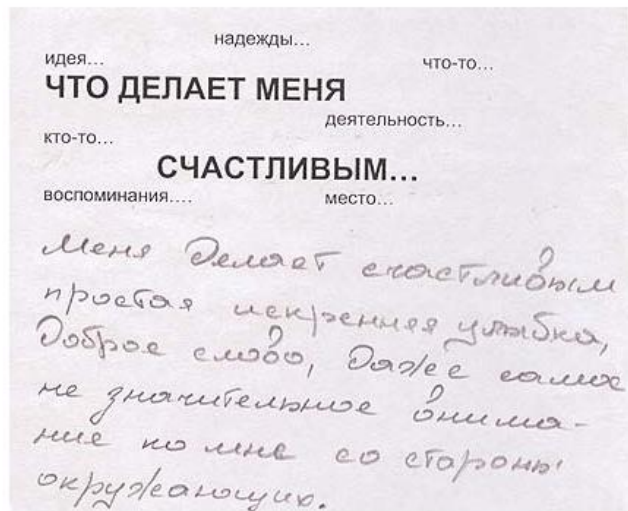 надежды...
идея...
что-то...
ЧТО ДЕЛАЕТ МЕНЯ
деятельность...
кто-то...
СЧАСТЛИВЫМ...
воспоминания....
место...
Меня делает счастливым
простая искренняя улыбка,
доброе слово, даже самое
не значительное внима-
ние ко мне со стороны
окружающих.